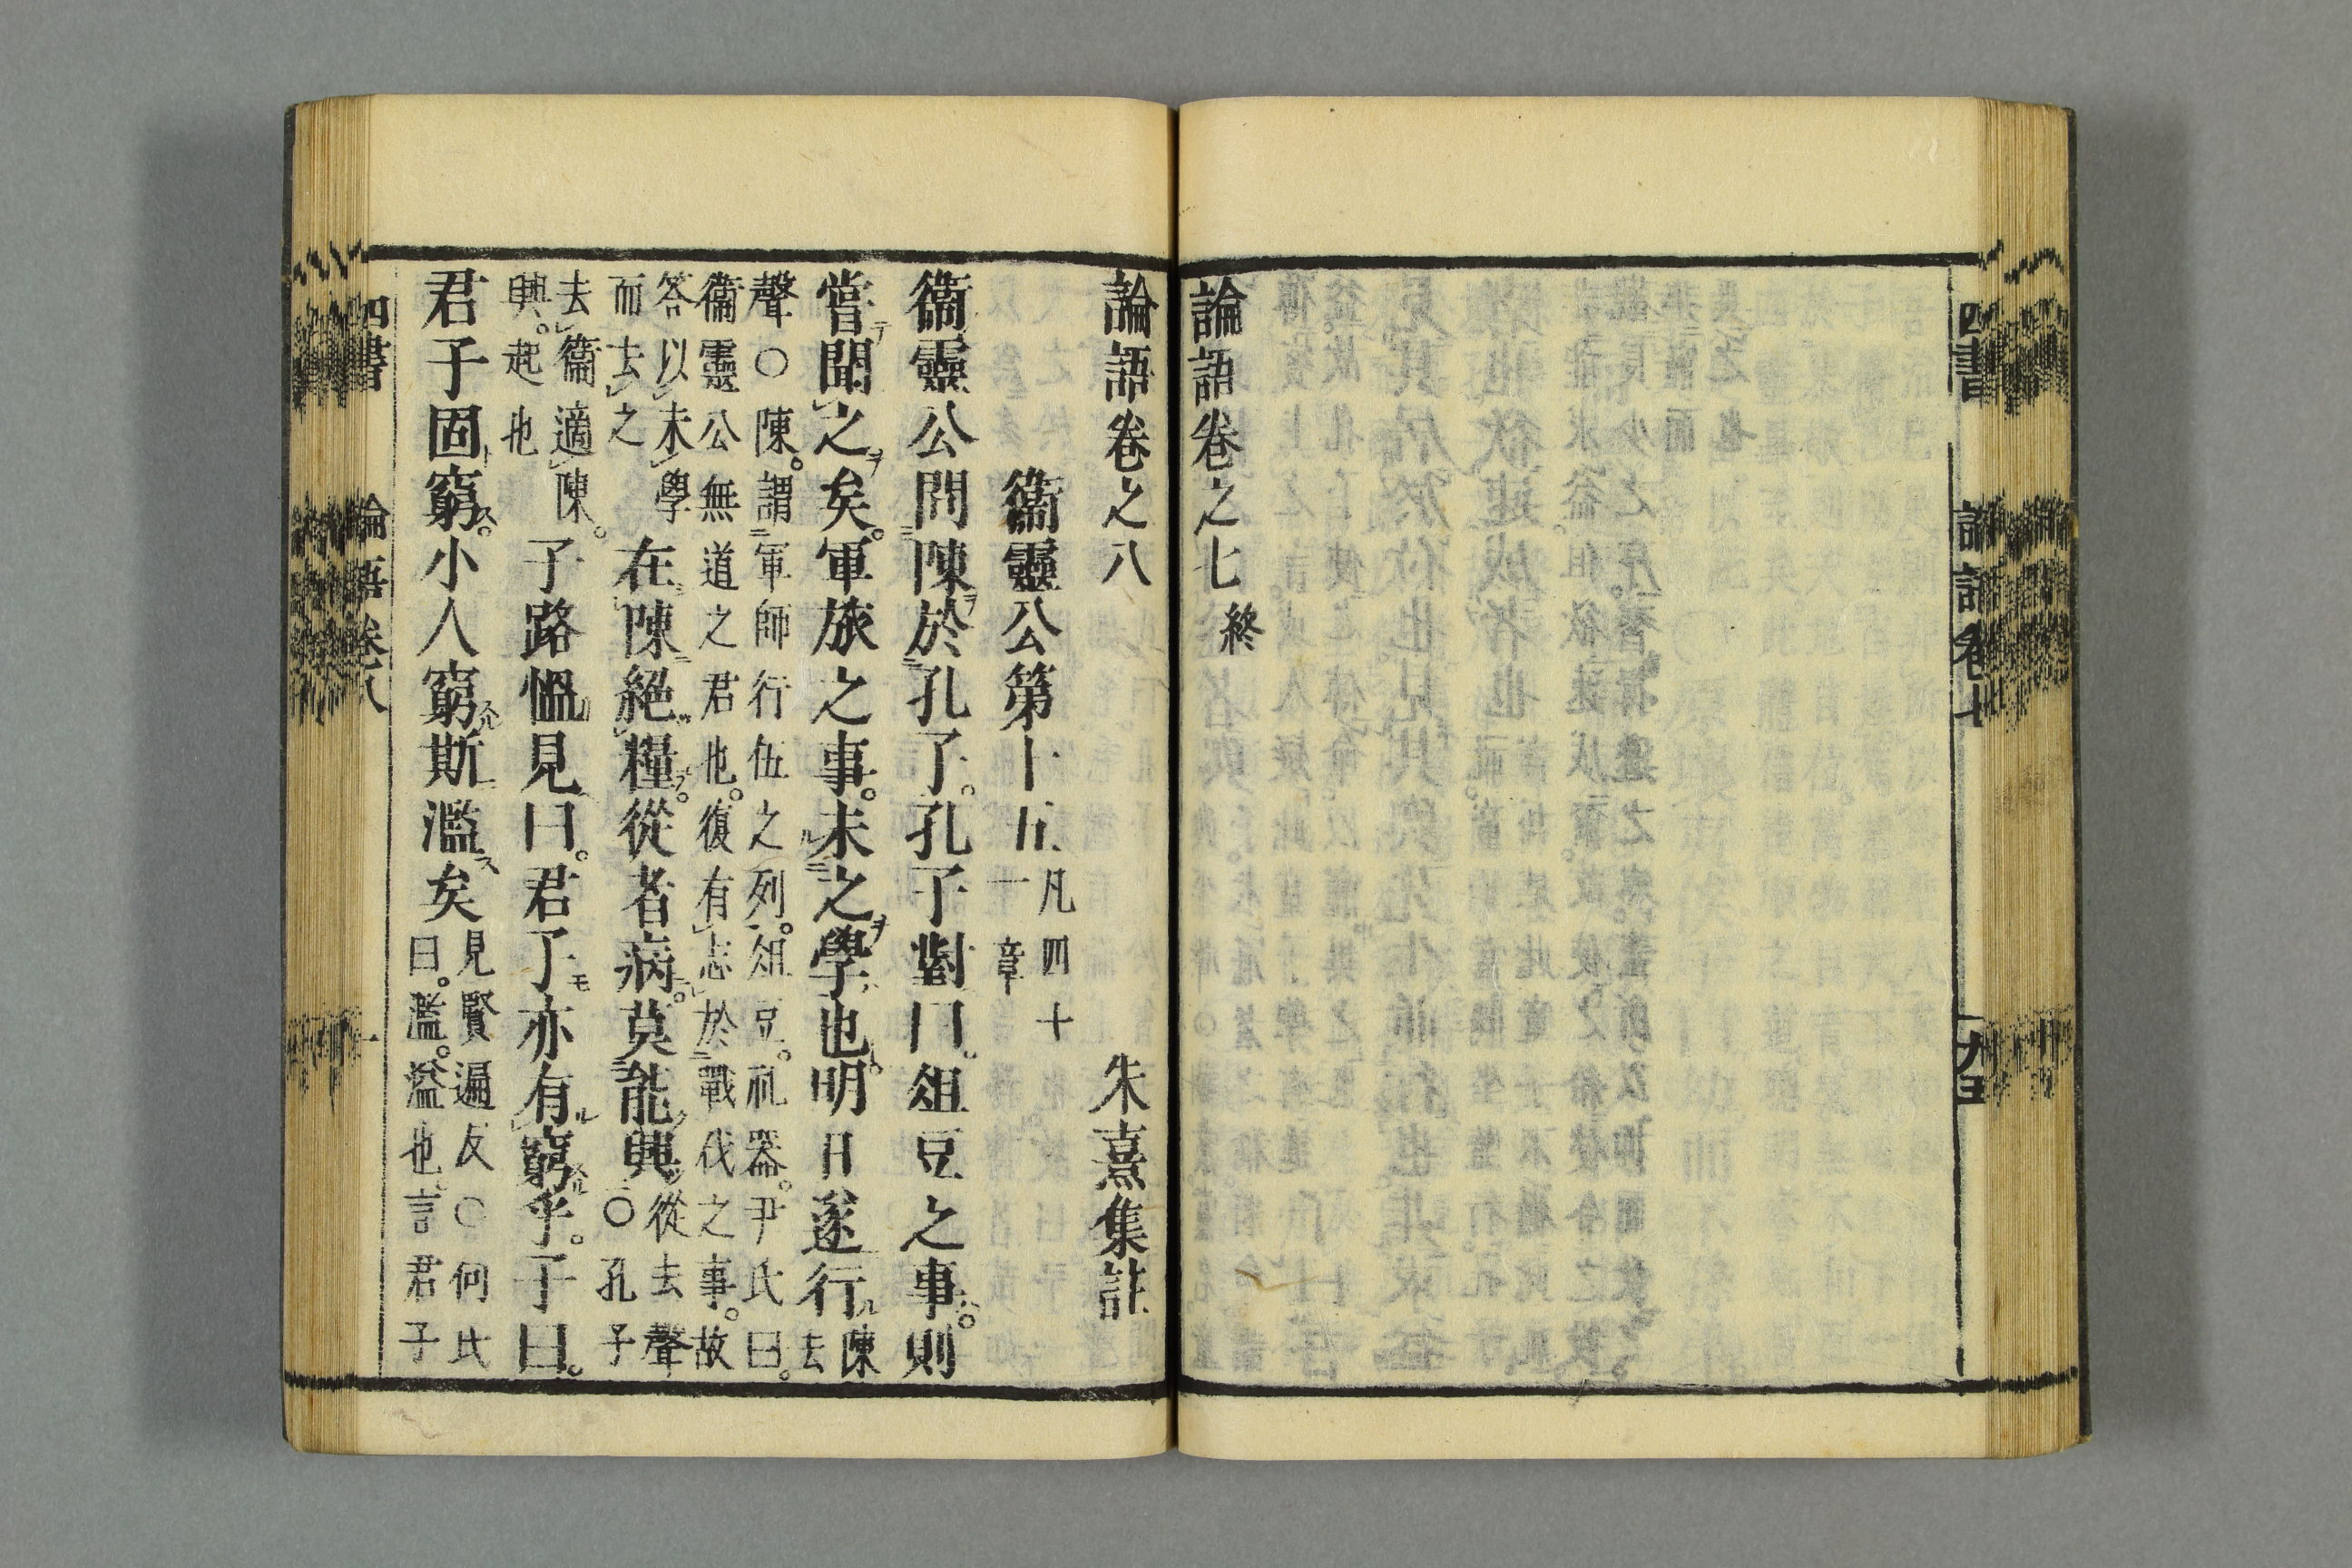 四書 論語卷七 九五
論語卷之七 終
論語卷之八 朱熹集註
衞靈公第十五 凡四十
一章
衞靈公問陳於孔子。孔子對曰。俎豆之事。則
嘗聞之矣。軍旅之事。未之學也。明日遂行 陳去
聲○陳。謂軍師行伍之列。俎豆。礼器。尹氏曰。
衞靈公無道之君也。復有志於戰伐之事。故
答以未學
而去之
在陳絕糧。從者病。莫能興 從去聲
○孔子
去衞適陳。
興。起也
子路慍見曰。君子亦有窮乎。子曰。
君子固窮。小人窮斯濫矣 見賢遍反○何氏
曰。濫。溢也。言君子
四書 論語卷八 一